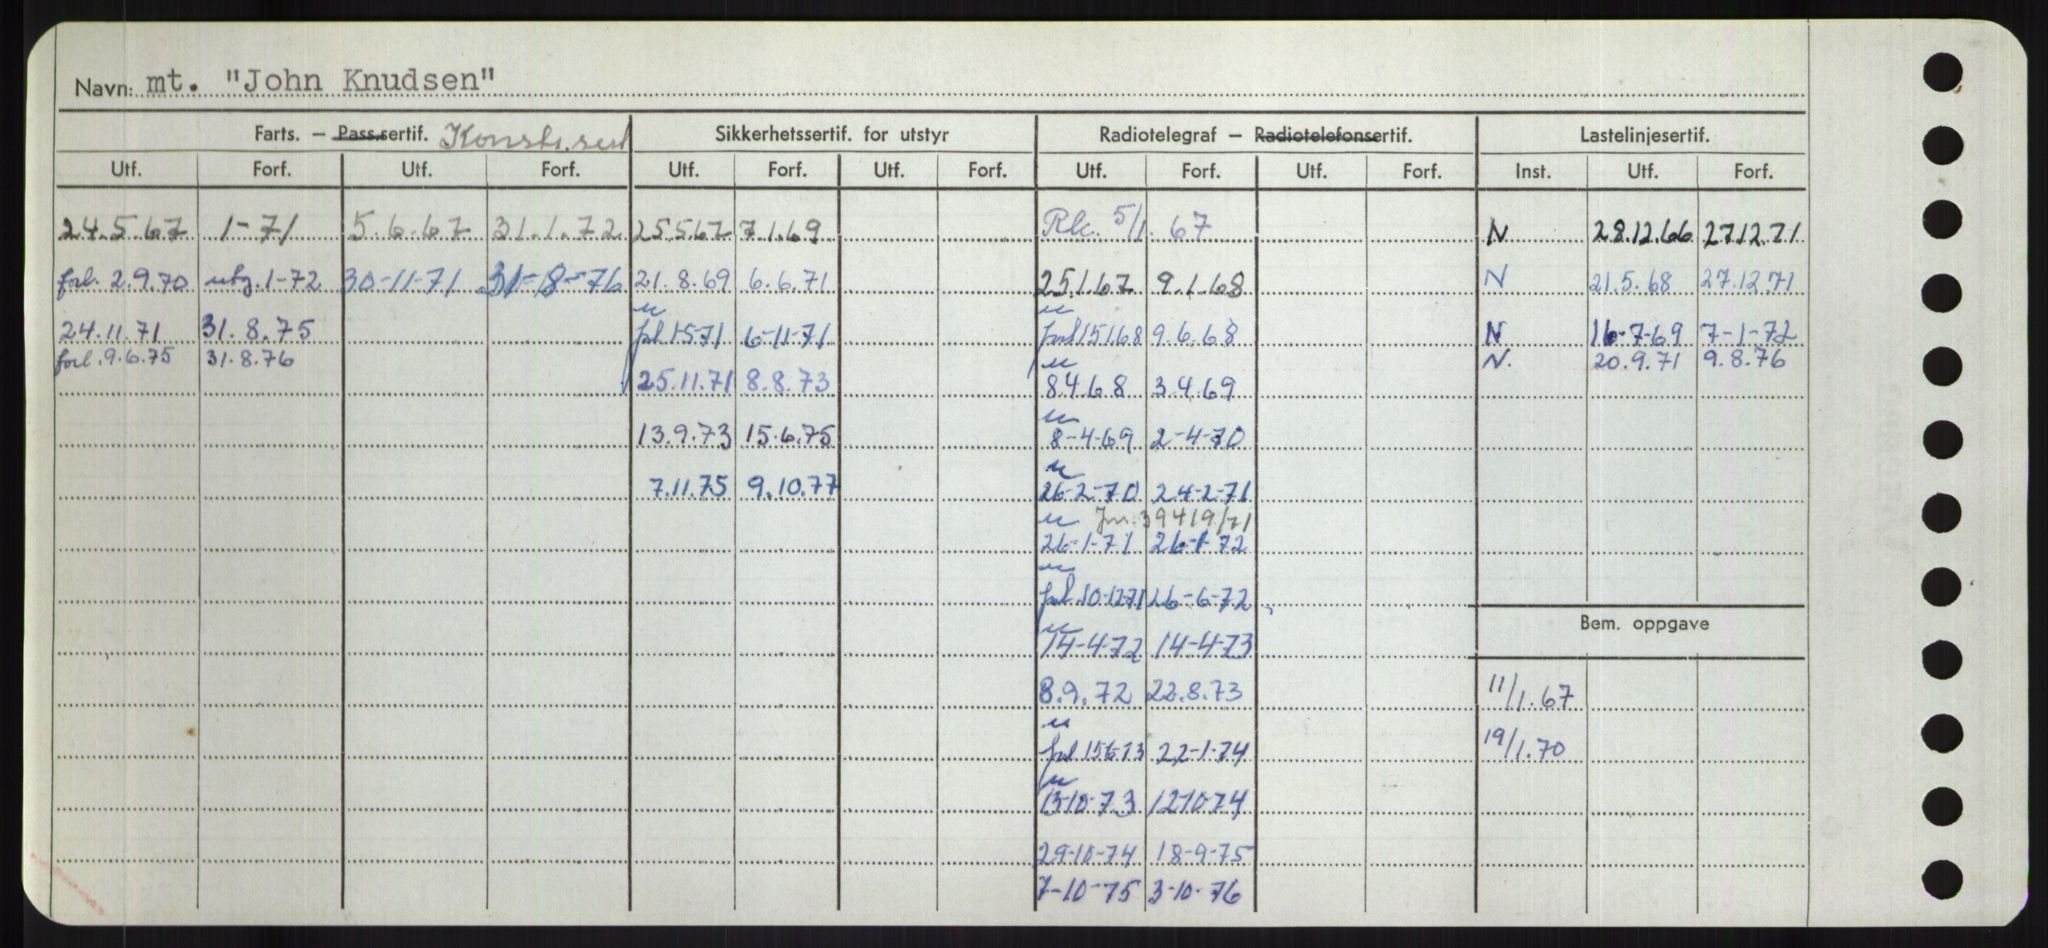 Navn: mt. "John Knudsen"
Farts. — Pass.sertif. Sikkerhetssertif. for utstyr Radiotelegraf — Radiotelefonsertif. Lastelinjesertif.
Utf. Forf. Utf. Forf. Utf. Forf. Utf. Forf. Utf. Forf. Utf. Forf. Inst. Utf. Forf.
24.5.67 1-71 5.6.67 31.1.72 25.5.67 7.1.69 5/1.67 N 28.12.66 27.12.71
forl. 2.9.70 1-72 30-11-71 31-8-76 21.8.69 6.6.71 25.1.67 9.1.68 N 21.5.68 27.12.71
24.11.71 31.8.75 1571 6-11-71 15168 9.6.68 N 16-7-69 7-1-72
forl. 9.6.75 31.8.76 N. 20.9.71 9.8.76
25.11.71 8.8.73 8.4.68 3.4.69
13.9.73 15.6.75 8-4-69 2-4-70
7.11.75 9.10.77 26-2-70 24-2-71
Jnr. 39419/71
26-1-71 26-1-72
10-12-71 26-6-72
Bem. oppgave
14-4-72 14-4-73
8.9.72 22.8.73 11/1.67
15673 22-1-74 19/1.70
15-10-73 12-10-74
29-10-74 18-9-75
7-10-75 3-10-76